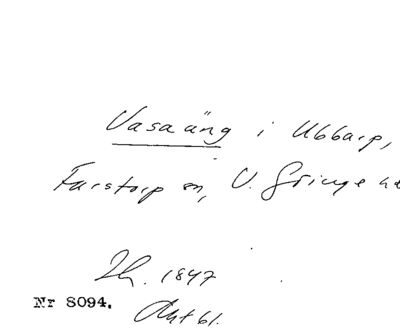 Vasaäng i Ubbarp,
Farstorp sn, V. Göinge hd
Lh. 1847
Nr 8094. Aktbl.